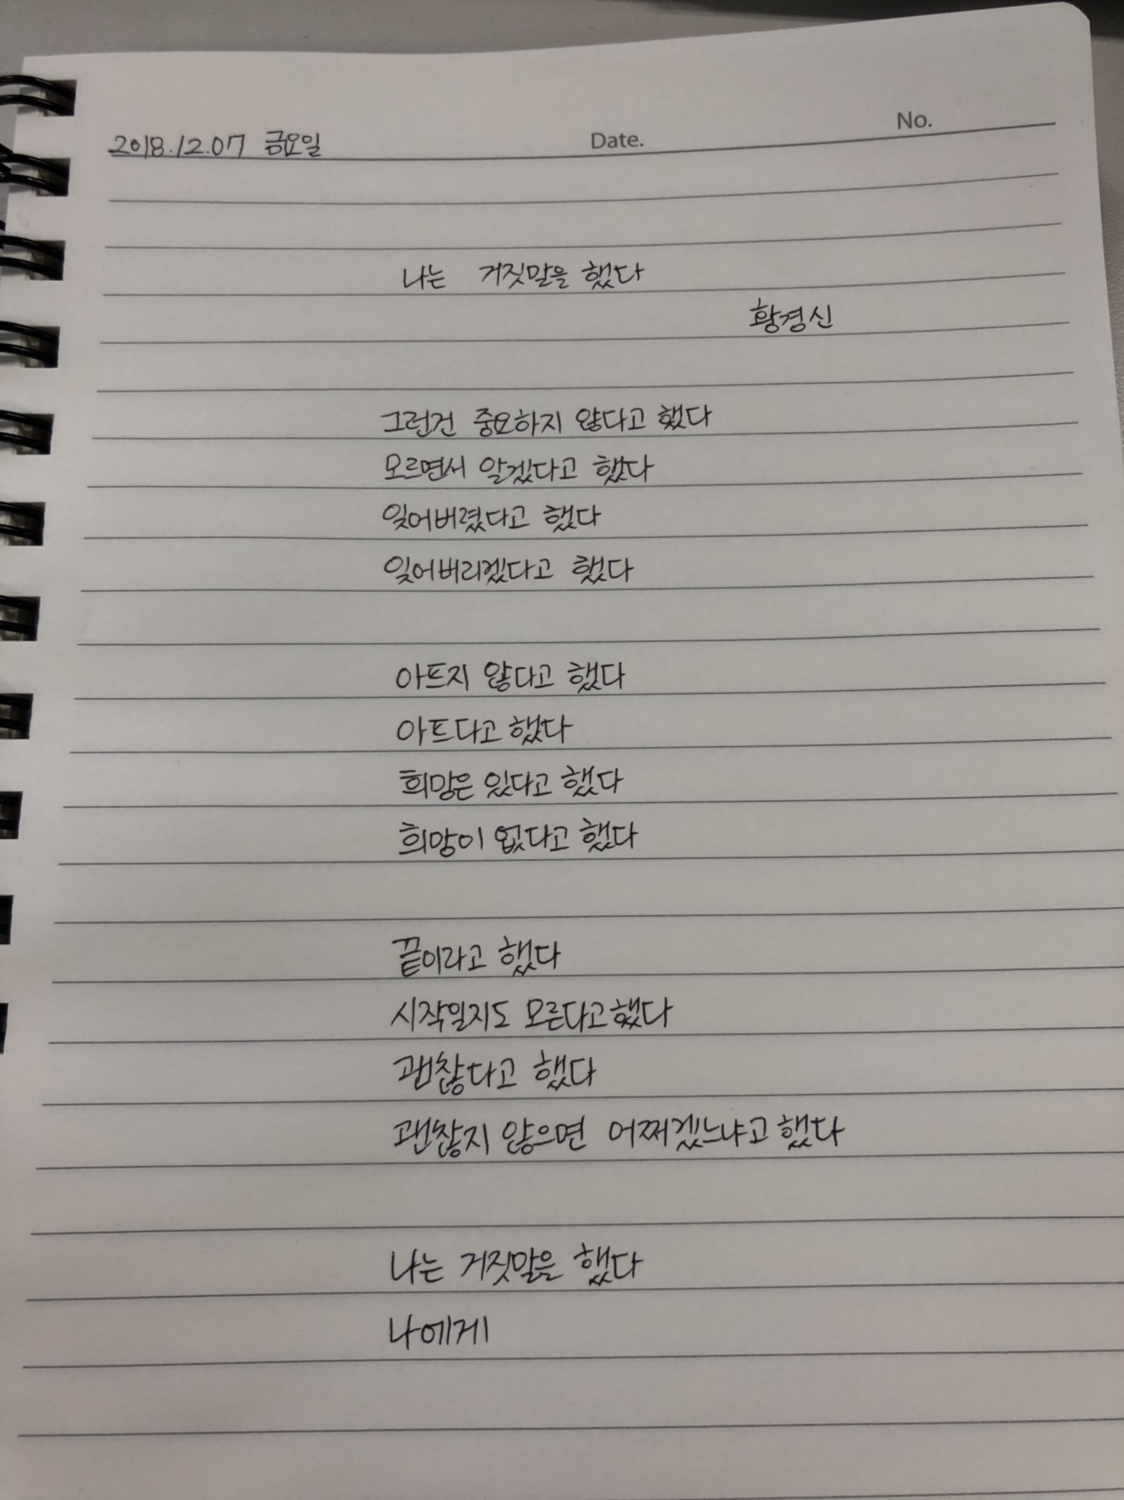 No.
2018.12.07 금요일 Date.
나는 거짓말을 했다
황경신
그런건 중요하지 않다고 했다
모르면서 알겠다고 했다
잊어버렸다고 했다
잊어버리겠다고 했다
아프지 않다고 했다
아프다고 했다
희망은 있다고 했다
희망이 없다고 했다
끝이라고 했다
시작일지도 모른다고 했다
괜찮다고 했다
괜찮지 않으면 어쩌겠느냐고 했다
나는 거짓말을 했다
나에게